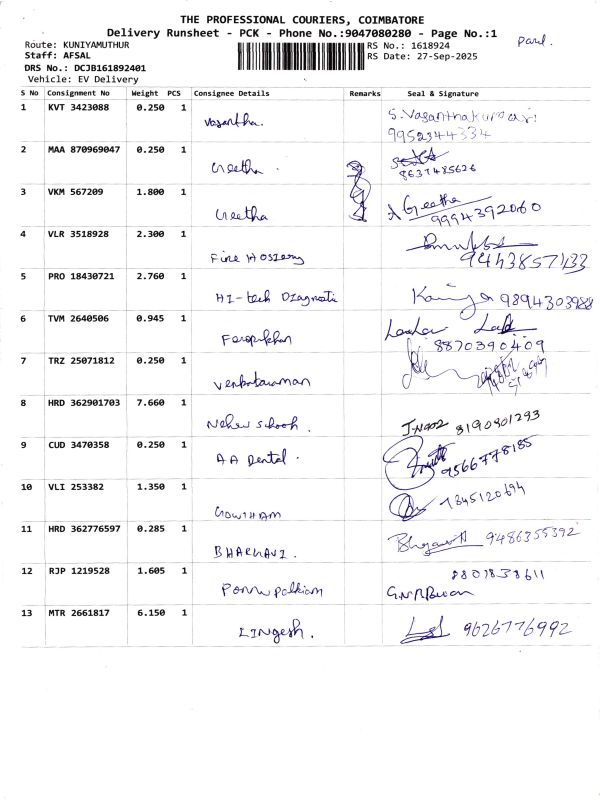 THE PROFESSIONAL COURIERS, COIMBATORE
Delivery Runsheet - PCK - Phone No.:9047080280 - Page No.:1
Route: KUNIYAMUTHUR RS No.: 1618924
Staff: AFSAL RS Date: 27-Sep-2025
DRS No.: DCJB161892401
Vehicle: EV Delivery
S No Consignment No Weight PCS Consignee Details Remarks Seal & Signature
1 KVT 3423088 0.250 1 Vasantha. S. Vasanthakumari
9952344334
2 MAA 870969047 0.250 1 Geetha. 8637485626
3 VKM 567209 1.800 1 Geetha Geetha
9994392060
4 VLR 3518928 2.300 1 Fine Hosiery 9443857433
5 PRO 18430721 2.760 1 HI-tech Diagnostic 9894303988
6 TVM 2640506 0.945 1 Faropikhan
8870390409
7 TRZ 25071812 0.250 1 Venkataraman
8 HRD 362901703 7.660 1 Nehru School. 8190801293
9 CUD 3470358 0.250 1 AA Dental. 9566778185
10 VLI 253382 1.350 1 GOWTHAM 7845120694
11 HRD 362776597 0.285 1 BHARGAVI. 9486355392
12 RJP 1219528 1.605 1 Ponnupalkiam 8801838611
13 MTR 2661817 6.150 1 LINgesh. 9626776992